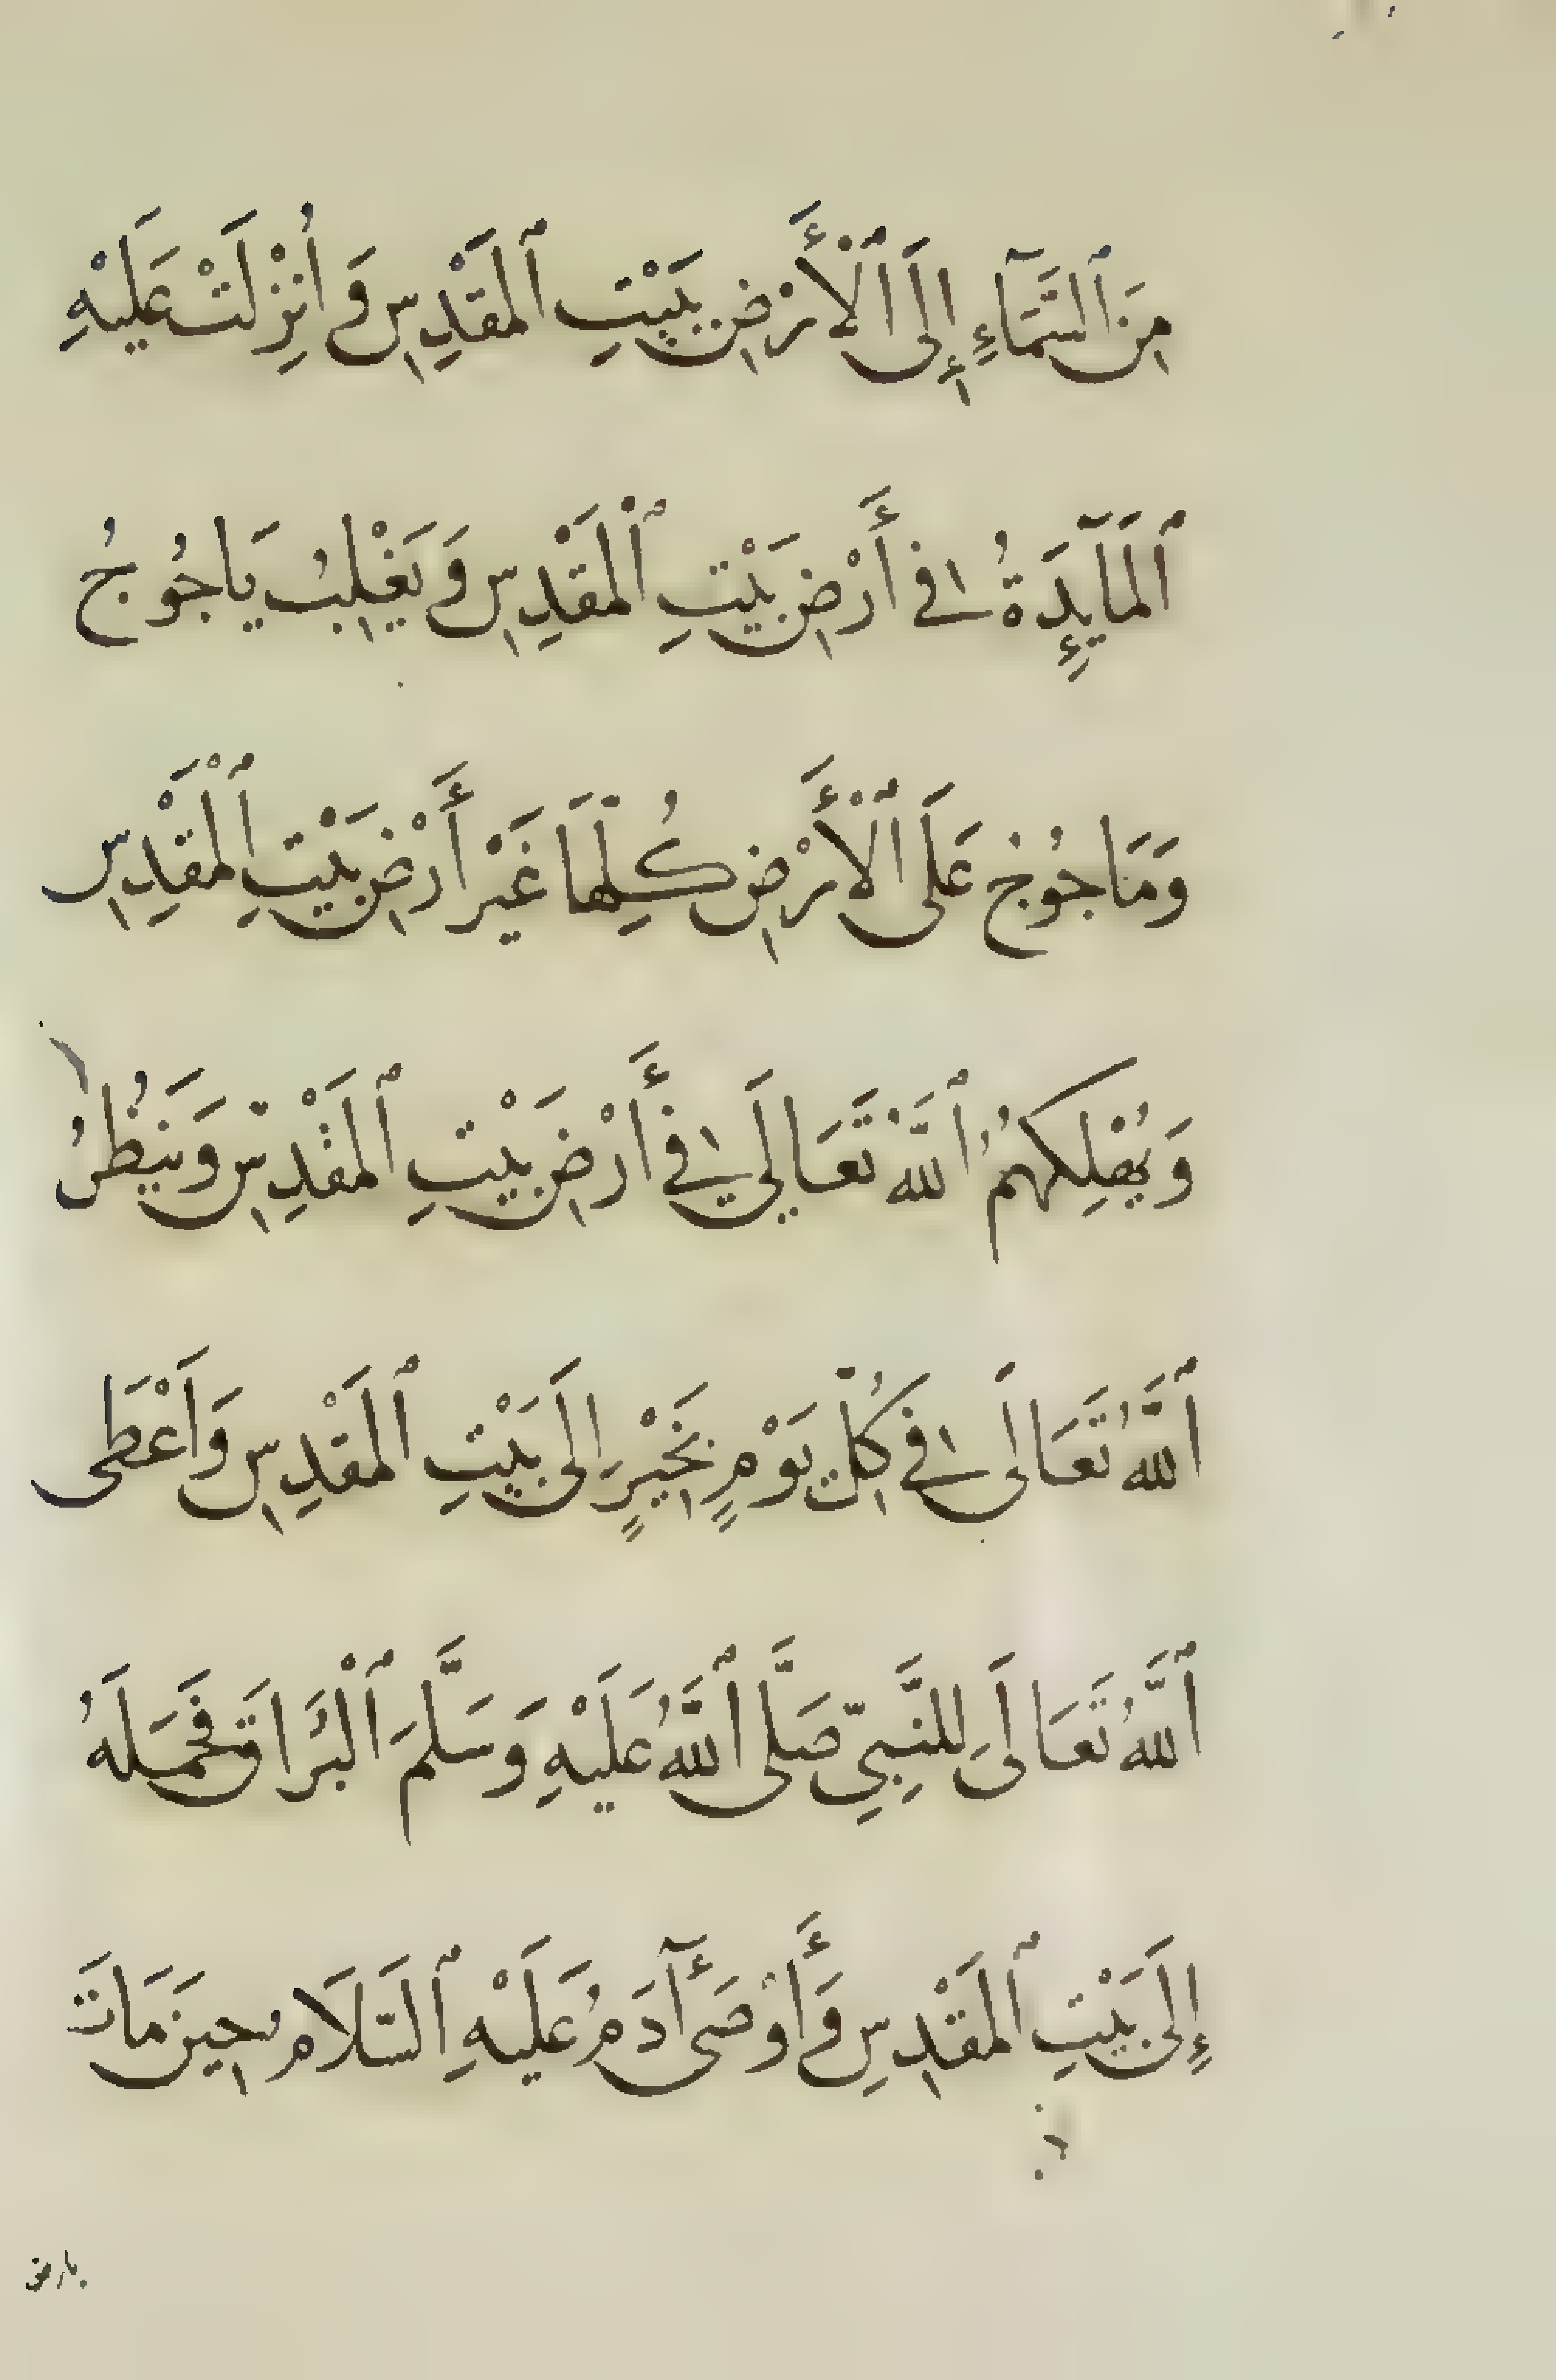 مِنَ ٱلسَّمَآءِ إِلَى ٱلْأَرْضِ بَيْتِ ٱلمَقْدِسِ وَ أُنْزِلَتْ عَلَيْهِ
ٱلمَآيِٕدَةُ فِي أَرْضِ بَيْتِ ٱلْمَقْدِسِ وَ يَغْلِبُ يَاجُوجُ
وَمَاجُوجُ عَلَى ٱلْأَرْضِ كُلِّهَا غَيْرَ أَرْضِ بَيْتِ ٱلْمَقْدِسِ
وَ يُهْلِكُهُمُ ٱللَّهُ تَعَالَي فِي أَرْضِ بَيْتِ ٱلمَقْدِسِ وَيَنْظُرُ
ٱللَّهُ تَعَالَى فِي كُلِّ يَوْمٍ بِخَيْرٍ اِلَى بَيْتِ ٱلمَقْدِسِ وَاَعْطَى
ٱللَّهُ تَعَالَىَ لِلنَّبِيِّ صَلَّى ٱللَّهُ عَلَيْهِ وَسَلَّمَ ٱلْبُرَاقَ فَحَمَلَهُ
إِلَى بَيْتِ ٱلمَقْدِسِ وَأَوْصَى أَٓدَمُ عَلَيْهِ ٱلسَّلَام حِينَ مَاتَ
بارض